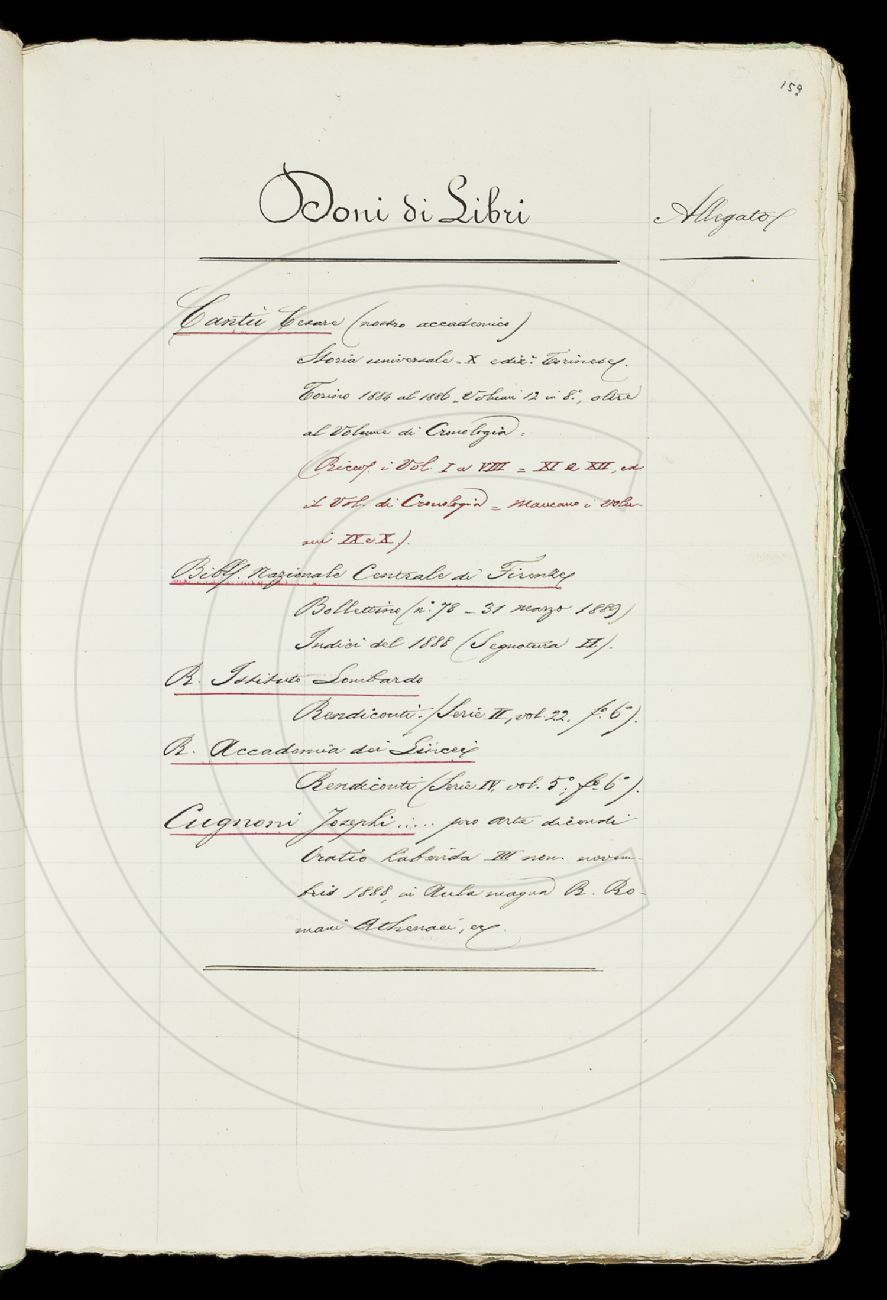 159
Doni di Libri
Allegato
Cantù Cesare (nostro accademico)
Storia universale - X ediz: Torinese.
Torino 1884 al 1886 - Volumi 12 in 8:, oltre
al Volume di Cronologia.
(Ricev. i Vol. I a VIII = XI e XII, ed
il Vol. di Cronologia = Mancano i volu-
mi IX e X).
Bibl. Nazionale Centrale di Firenze
Bollettino (n: 78 - 31 marzo 1889)
Indici del 1888 (Segnatura II).
R. Istituto Lombardo
Rendiconti. (Serie II, vol. 22. f.º 6º).
R. Accademia dei Lincei
Rendiconti (Serie IV, vol. 5º, f.º 6º).
Cugnoni Josephi ..... pro arte dicendi
Oratio habenda III non. novem-
bris 1888, in Aula magna R. Ro-
mani Athenaei,